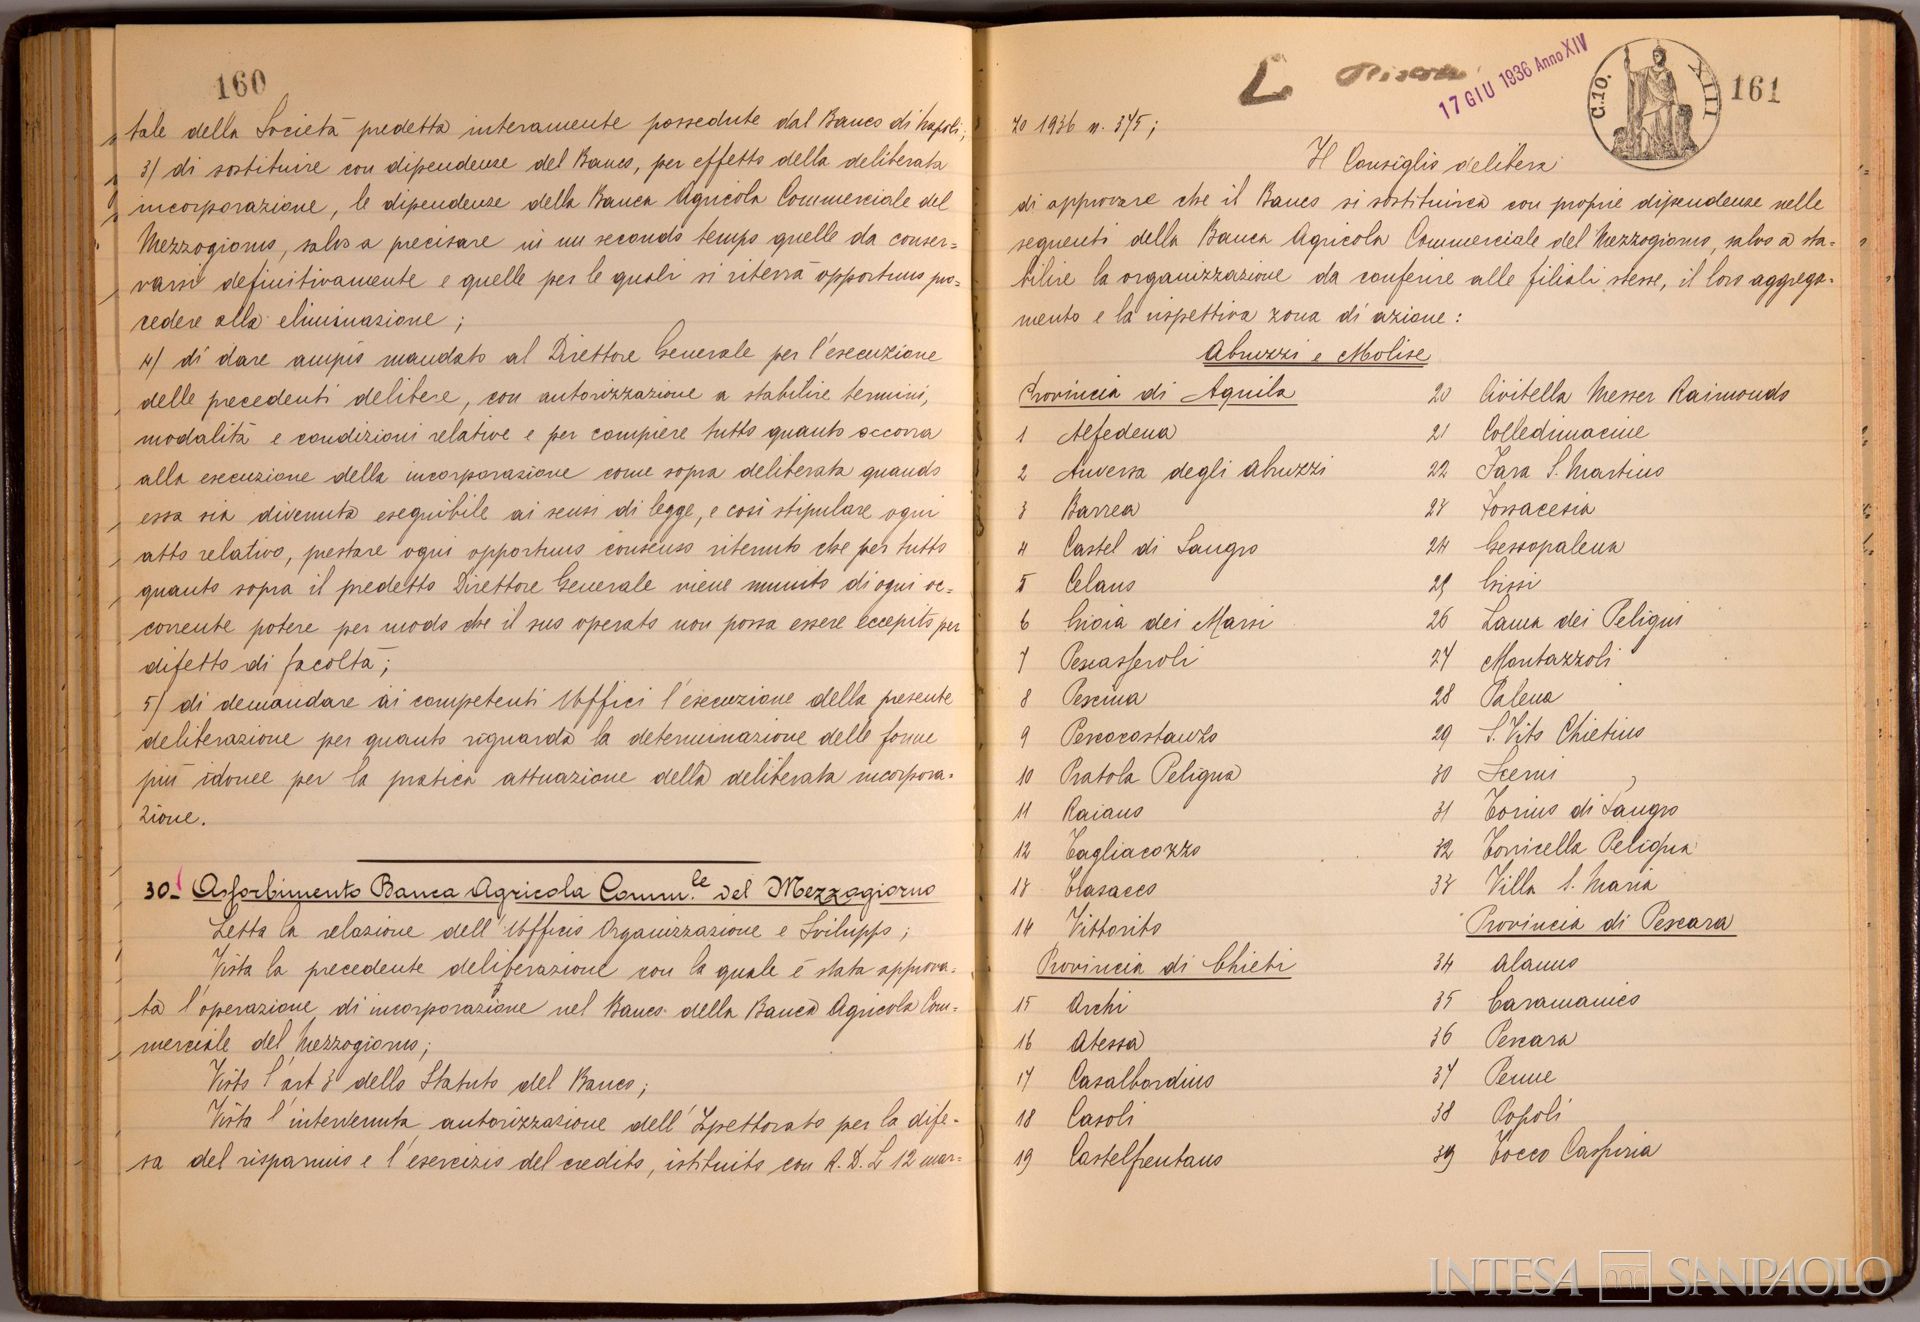 160
tale della Società predetta interamente possedute dal Banco di Napoli;
3) di sostituire con dipendenze del Banco, per effetto della deliberata
incorporazione, le dipendenze della Banca Agricola Commerciale del
Mezzogiorno, salvo a precisare in un secondo tempo quelle da conser=
varsi definitivamente e quelle per le quali si riterrà opportuno pro=
cedere alla eliminazione;
4) di dare ampio mandato al Direttore Generale per l'esecuzione
delle precedenti delibere, con autorizzazione a stabilire termini,
modalità e condizioni relative e per compiere tutto quanto occorra
alla esecuzione della incorporazione come sopra deliberata quando
essa sia divenuta eseguibile ai sensi di legge, e così stipulare ogni
atto relativo, prestare ogni opportuno consenso ritenuto che per tutto
quanto sopra il predetto Direttore Generale viene munito di ogni oc=
corrente potere per modo che il suo operato non possa essere eccepito per
difetto di facoltà;
5) di demandare ai competenti Uffici l'esecuzione della presente
deliberazione per quanto riguarda la determinazione delle forme
più idonee per la pratica attuazione della deliberata incorpora=
zione.
30- Assorbimento Banca Agricola Comm.le del Mezzogiorno
Letta la relazione dell'Ufficio Organizzazione e Sviluppo;
Vista la precedente deliberazione con la quale è stata approva=
ta l'operazione di incorporazione nel Banco della Banca Agricola Com=
merciale del Mezzogiorno;
Visto l'art 3 dello Statuto del Banco;
Vista l'intervenuta autorizzazione dell'Ispettorato per la dife=
sa del risparmio e l'esercizio del credito, istituito con R. D. L 12 mar=
17 GIU 1936 Anno XIV
C.10.
XIII
161
zo 1936 n. 375;
Il Consiglio delibera
di approvare che il Banco si sostituisca con proprie dipendenze nelle
seguenti della Banca Agricola Commerciale del Mezzogiorno, salvo a sta=
bilire la organizzazione da conferire alle filiali stesse, il loro aggrega=
mento e la rispettiva zona di azione:
Abruzzi e Molise
Provincia di Aquila
1 Alfedena
2 Anversa degli Abruzzi
3 Barrea
4 Castel di Sangro
5 Celano
6 Gioia dei Marsi
7 Pescasseroli
8 Pescina
9 Pescocostanzo
10 Pratola Peligna
11 Raiano
12 Tagliacozzo
13 Trasacco
14 Vittorito
Provincia di Chieti
15 Archi
16 Atessa
17 Casalbordino
18 Casoli
19 Castelfrentano
20 Civitella Messer Raimondo
21 Colledimacine
22 Fara S. Martino
23 Fossacesia
24 Gessopalena
25 Gissi
26 Lama dei Peligni
27 Montazzoli
28 Palena
29 S. Vito Chietino
30 Scerni
31 Torino di Sangro
32 Torricella Peligna
33 Villa S. Maria
Provincia di Pescara
34 Alanno
35 Caramanico
36 Pescara
37 Penne
38 Popoli
39 Tocco Casauria
INTESA SANPAOLO